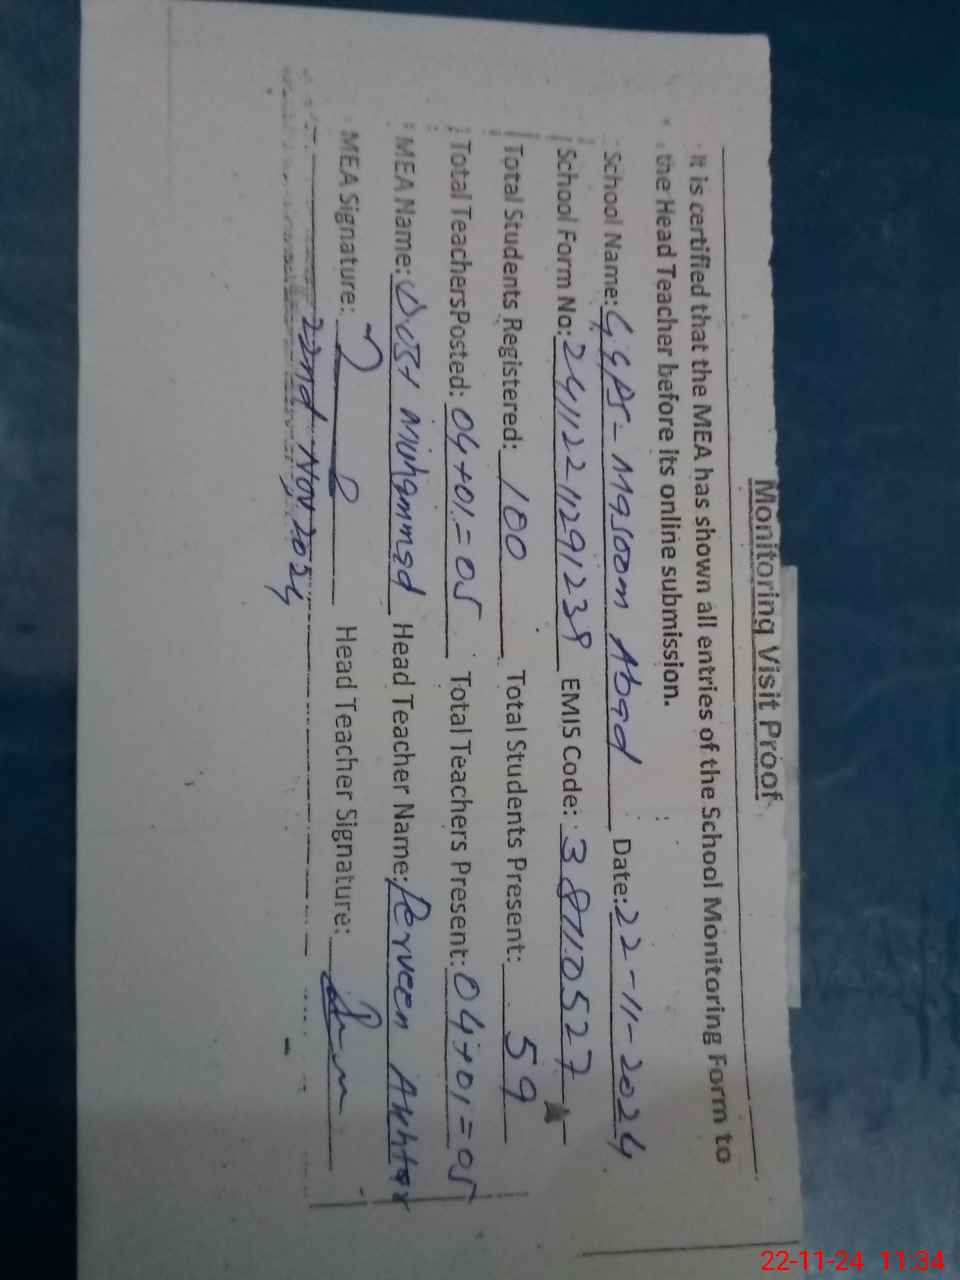 Monitoring Visit Proof
It is certified that the MEA has shown all entries of the School Monitoring Form to
the Head Teacher before its online submission.
School Name: GGPS- Masoom Abad Date: 22-11-2024
School Form No: EMIS Code: 38110527
Total Students Registered: 100 Total Students Present: 59
Total TeachersPosted: 04+01=05 Total Teachers Present: 04+01=05
MEA Name: Dost Muhammad Head Teacher Name: Perveen Akhtar
MEA Signature: Head Teacher Signature:
22nd Nov 2024
22-11-24 11:34